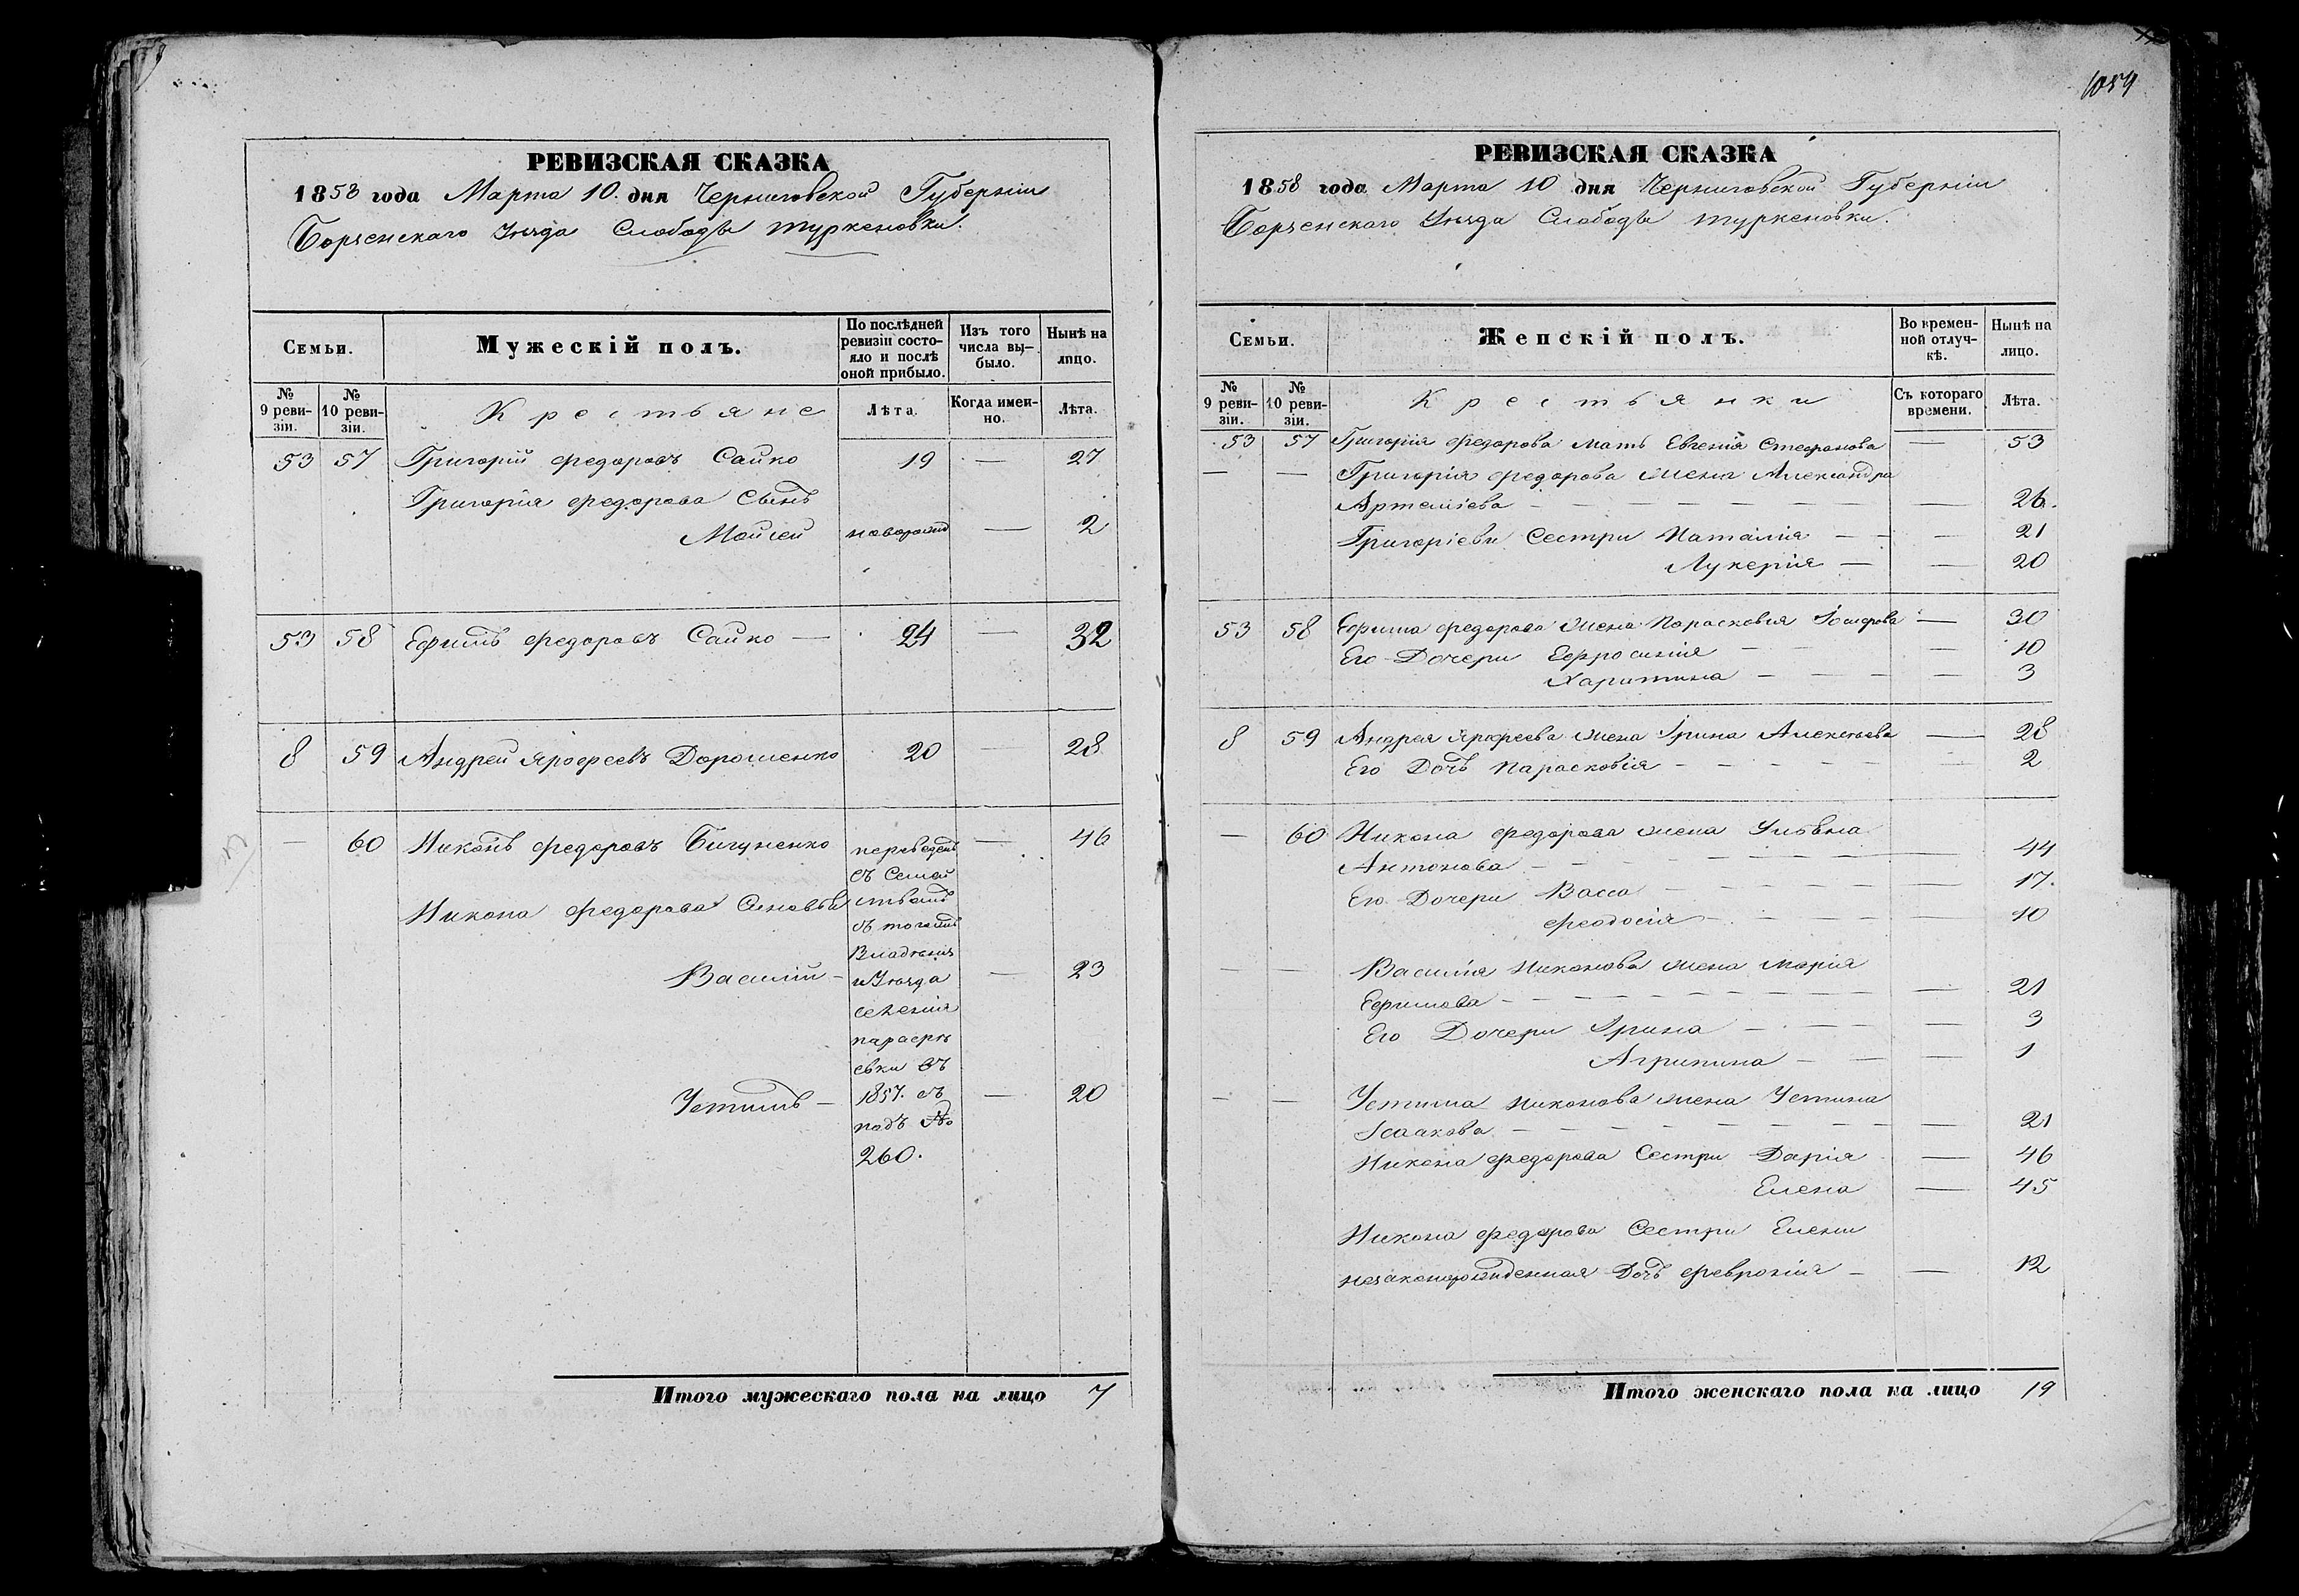 РЕВИЗСКАЯ СКАЗКА
1858 года Марта 10. дня Черниговской Губерніи
Борзенскаго Уѣзда Слободы Туркеновки.
Семьи.
Мужескій полъ.
По послѣдней ревизіи состояло и послѣ оной прибыло.
Изъ того числа выбыло.
Нынѣ на лицо.
№ 9 ревизіи.
№ 10 ревизіи.
Крестьяне
Лѣта.
Когда именно.
Лѣта.
53 57 Григорій Федоровъ Сайко 19 — 27
Григорія Федорова Сынъ
Мойсей новорожд — 2
53 58 Ефимъ Федоровъ Сайко — 24 — 32
8 59 Андрей Ярофеевъ Дорошенко 20 — 28
— 60 Никонъ Федоровъ Бигуненко переведенъ — 46
съ Семей
Никона Федорова Сыновья ствомъ
съ тогожъ
Владѣнія
Василій — и Уѣзда — 23
селенія
парафіѣ
евки въ
Устимъ — 1857. съ — 20
подъ №
260.
Итого мужескаго пола на лицо 7
1059
РЕВИЗСКАЯ СКАЗКА
1858 года Марта 10 дня Черниговской Губерніи
Борзенскаго Уѣзда Слободы Туркеновки.
Семьи.
Женскій полъ.
Во временной отлучкѣ.
Нынѣ на лицо.
№ 9 ревизіи.
№ 10 ревизіи.
Крестьянки
Съ котораго времени.
Лѣта.
53 57 Григорія Федорова Мать Евгенія Стефанова — 53
— — Григорія Федорова жена Александра
Артеміева — — 26.
Григоріеви Сестри Наталія — — 21
Лукерія — — 20
53 58 Ефима Федорова жена Парасковія — 30
Его Дочери Ефросинія — — 10
Харитина — — 3
8 59 Андрея Ярофеева жена Ірина Алексѣева — 28
Его Дочь Парасковія — — 2
— 60 Никона Федорова жена Уляна
Антонова — — 44
Его Дочери Васса — — 17.
Феодосія — — 10
— — Василія Никонова жена Марія
Ефимова — — 21
Его Дочери Ірина — — 3
Агрипина — — 1
— — Устима Никонова жена Устина
Ісаакова — — 21
Никона Федорова Сестри Дарія — 46
Елена — 45
Никона Федорова Сестри Елени
незаконорожденная Дочь Февронія — — 12
Итого женскаго пола на лицо 19